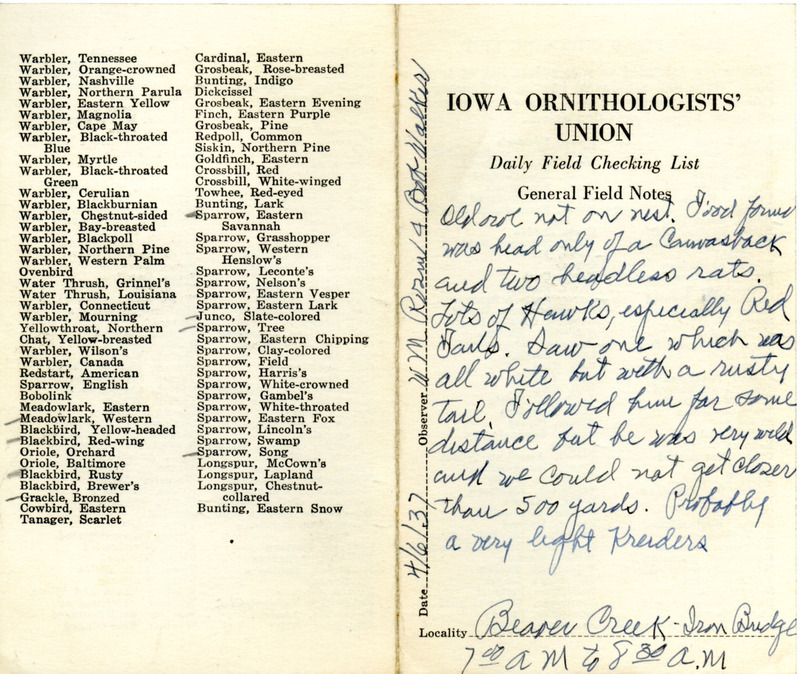 Warbler, Tennessee
Warbler, Orange-crowned
Warbler, Nashville
Warbler, Northern Parula
Warbler, Eastern Yellow
Warbler, Magnolia
Warbler, Cape May
Warbler, Black-throated
Blue
Warbler, Myrtle
Warbler, Black-throated
Green
Warbler, Cerulian
Warbler, Blackburnian
Warbler, Chestnut-sided
Warbler, Bay-breasted
Warbler, Blackpoll
Warbler, Northern Pine
Warbler, Western Palm
Ovenbird
Water Thrush, Grinnel's
Water Thrush, Louisiana
Warbler, Connecticut
Warbler, Mourning
Yellowthroat, Northern
Chat, Yellow-breasted
Warbler, Wilson's
Warbler, Canada
Redstart, American
Sparrow, English
Bobolink
Meadowlark, Eastern
Meadowlark, Western
Blackbird, Yellow-headed
Blackbird, Red-wing
Oriole, Orchard
Oriole, Baltimore
Blackbird, Rusty
Blackbird, Brewer's
Grackle, Bronzed
Cowbird, Eastern
Tanager, Scarlet
Cardinal, Eastern
Grosbeak, Rose-breasted
Bunting, Indigo
Dickcissel
Grosbeak, Eastern Evening
Finch, Eastern Purple
Grosbeak, Pine
Redpoll, Common
Siskin, Northern Pine
Goldfinch, Eastern
Crossbill, Red
Crossbill, White-winged
Towhee, Red-eyed
Bunting, Lark
Sparrow, Eastern
Savannah
Sparrow, Grasshopper
Sparrow, Western
Henslow's
Sparrow, Leconte's
Sparrow, Nelson's
Sparrow, Eastern Vesper
Sparrow, Eastern Lark
Junco, Slate-colored
Sparrow, Tree
Sparrow, Eastern Chipping
Sparrow, Clay-colored
Sparrow, Field
Sparrow, Harris's
Sparrow, White-crowned
Sparrow, Gambel's
Sparrow, White-throated
Sparrow, Eastern Fox
Sparrow, Lincoln's
Sparrow, Swamp
Sparrow, Song
Longspur, McCown's
Longspur, Lapland
Longspur, Chestnut-
collared
Bunting, Eastern Snow
Date 4/6/37 Observer W M Rosene & Bob Walker
IOWA ORNITHOLOGISTS'
UNION
Daily Field Checking List
General Field Notes
Old owl not on nest. Food found
was head only of a Canvasback
and two headless rats.
Lots of Hawks, especially Red
Tails. Saw one which was
all white but with a rusty
tail. Followed him for some
distance but he was very wild
and we could not get closer
than 500 yards. Probably
a very light Kreiders
Locality Beaver Creek - Iron Bridge
7 00 A M to 8 30 A.M